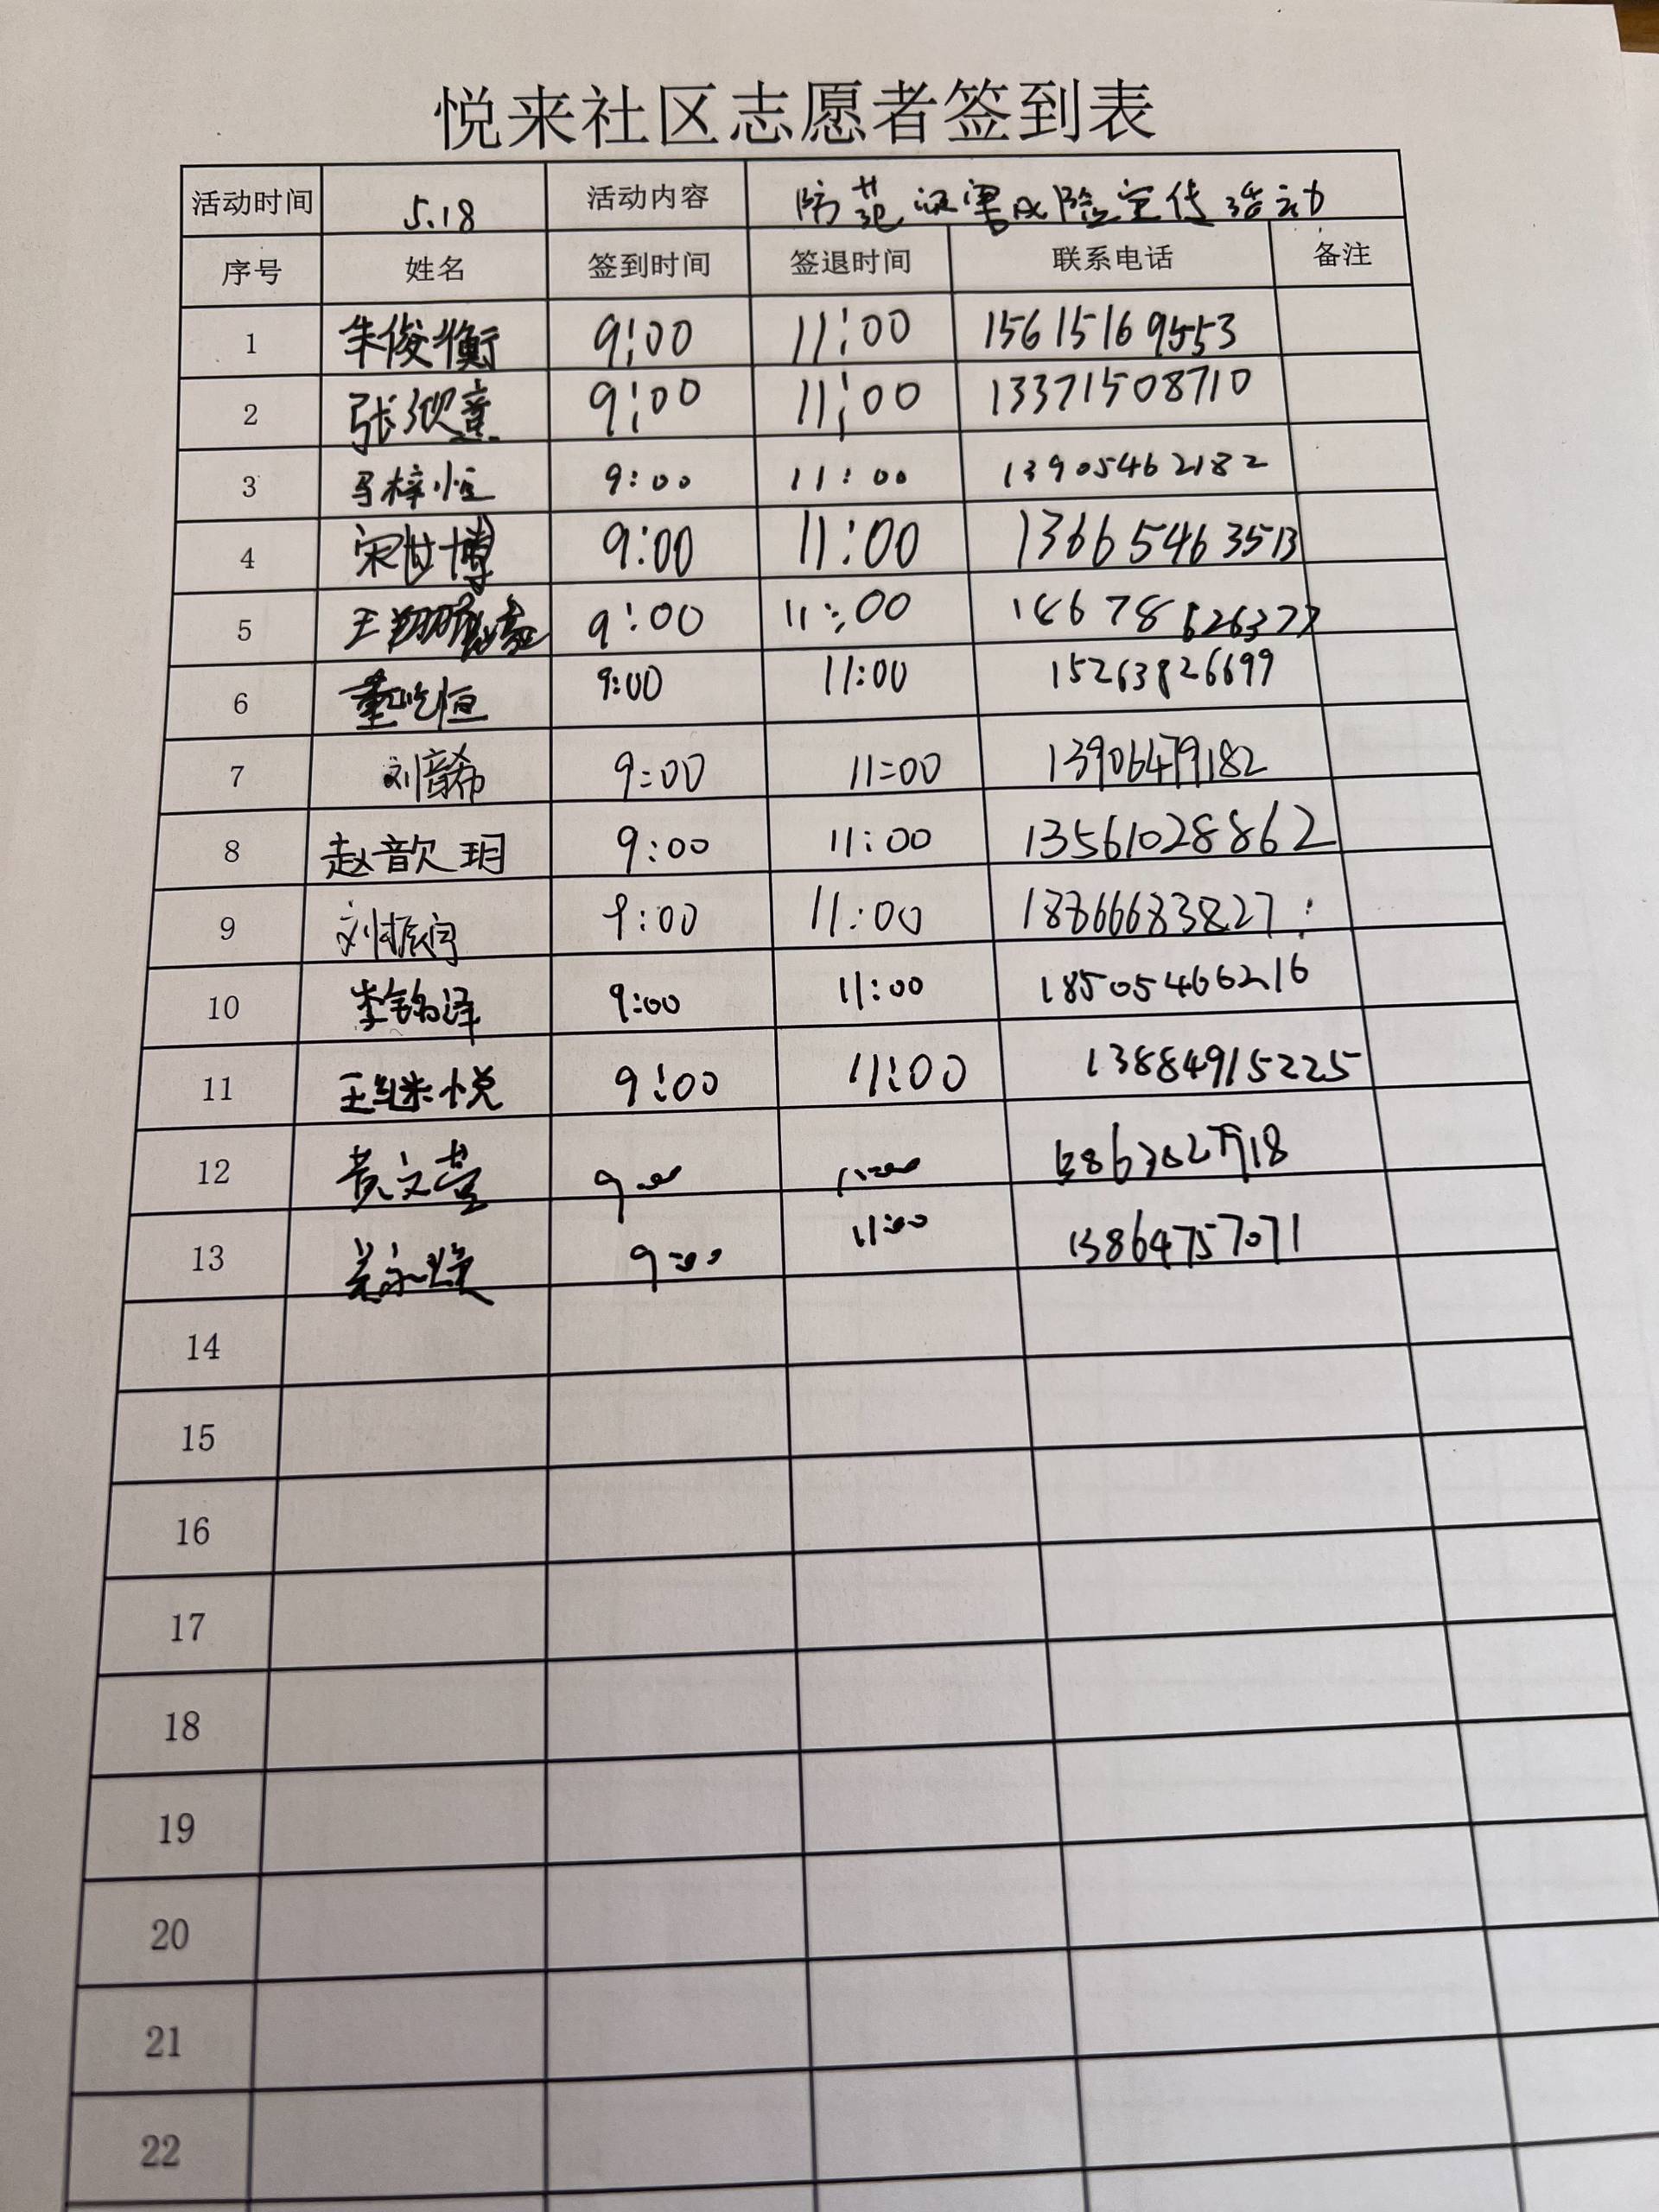 悦来社区志愿者签到表
活动时间 5.18 活动内容 防范 险宣传活动
序号 姓名 签到时间 签退时间 联系电话 备注
1 朱俊衡 9:00 11:00 15615169553
2 张 童 9:00 11:00 13371508710
3 马梓恒 9:00 11:00 13905462182
4 宋世博 9:00 11:00 13665463513
5 王 9:00 11:00
6 董屹恒 9:00 11:00 15263826699
7 刘音希 9:00 11:00 13906479182
8 赵歆玥 9:00 11:00 13561028862
9 刘振宇 9:00 11:00 18866683827
10 李铭泽 9:00 11:00 18505466216
11 王继悦 9:00 11:00 13884915225
12 黄文萱 9:00 11:00
13 9:00 11:00 13864757071
14
15
16
17
18
19
20
21
22